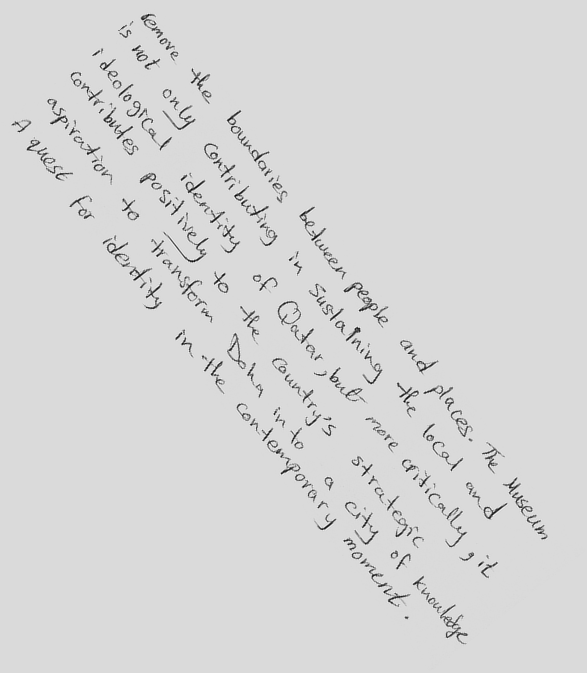 remove the boundaries between people and places. The Museum
is not only contributing in sustaining the local and
ideological identity of Qatar, but more critically, it
contributes positively to the country's strategic
aspiration to transform Doha in to a city of knowledge
A quest for identity in the contemporary moment.